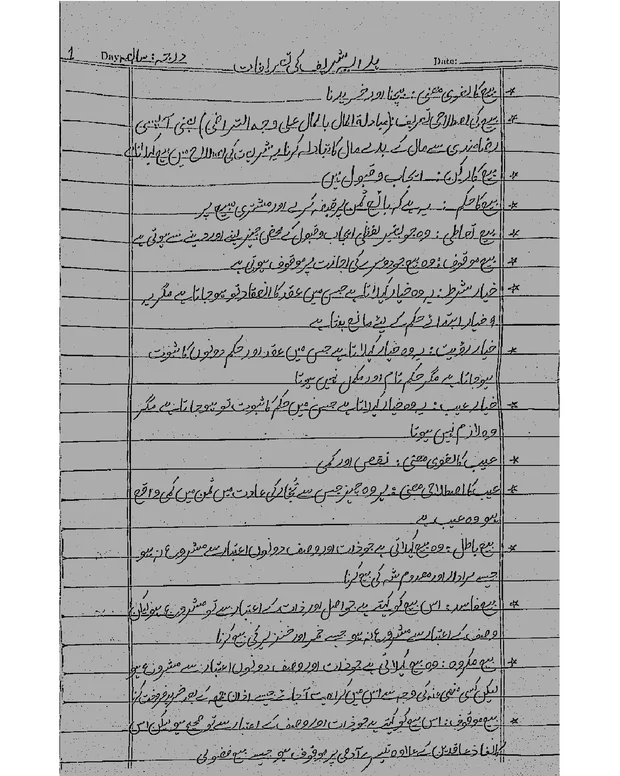 1 Day: درجہ: سال Date:
ہدایہ شریف کی تعریفات
* بیع کا لغوی معنی: بیچنا اور خریدنا
* بیع کی اصطلاحی تعریف: (مبادلۃ المال بالمال علی وجہ التراضی) یعنی آپسی
رضامندی سے مال کے بدلے مال کا تبادلہ کرنا یہ شریعت کی اصطلاح میں بیع کہلاتا ہے
* بیع کا رکن: ایجاب و قبول ہیں
* بیع کا حکم: یہ ہے کہ بائع ثمن پر قبضہ کرے اور مشتری مبیع پر
* بیع تعاطی: وہ جو بغیر لفظی ایجاب و قبول کے محض چیز لینے اور دینے سے ہوتی ہے
* بیع موقوف: وہ بیع جو دوسرے کی اجازت پر موقوف ہوتی ہے
* خیار شرط: یہ وہ خیار کہلاتا ہے جس میں عقد کا انعقاد تو ہو جاتا ہے مگر یہ
خیار ابتدائے حکم کے لیے مانع بنتا ہے
* خیار رؤیت: یہ وہ خیار کہلاتا ہے جس میں عقد اور حکم دونوں کا ثبوت
ہو جاتا ہے مگر حکم تام اور مکمل نہیں ہوتا
* خیار عیب: یہ وہ خیار کہلاتا ہے جس میں حکم کا ثبوت تو ہو جاتا ہے مگر
وہ لازم نہیں ہوتا
* عیب کا لغوی معنی: نقص اور کمی
* عیب کا اصطلاحی معنی: ہر وہ چیز جس سے تجار کی عادت میں ثمن میں کمی واقع
ہو وہ عیب ہے
* بیع باطل: وہ بیع کہلاتی ہے جو ذات اور وصف دونوں اعتبار سے مشروع نہ ہو
جیسے مردار اور معدوم شئ کی بیع کرنا
* بیع فاسد: اس بیع کو کہتے ہے جو اصل اور ذات کے اعتبار سے تو مشروع ہو لیکن
وصف کے اعتبار سے مشروع نہ ہو جیسے خمر اور خنزیر کی بیع کرنا
* بیع مکروہ: وہ بیع کہلاتی ہے جو ذات اور وصف دونوں اعتبار سے مشروع ہو
لیکن کسی منھی عنہ کی وجہ سے اس میں کراہیت آجائے جیسے اذان جمعہ کے بعد خرید و فروخت کرنا
* بیع موقوف: اس بیع کو کہتے ہے جو ذات اور وصف کے اعتبار سے تو صحیح ہو لیکن اس
کا نفاذ عاقدین کے علاوہ تیسرے آدمی پر موقوف ہو جیسے بیع فضولی